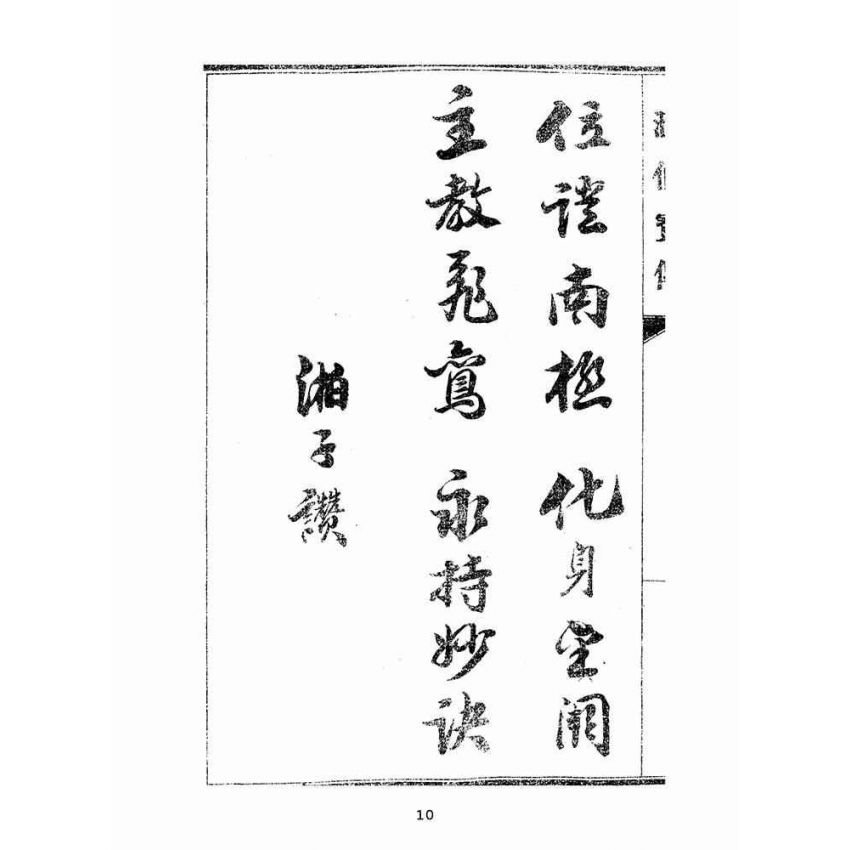 位證南極 化身金闕
主教飛鸞 永持妙訣
湘子讚
10